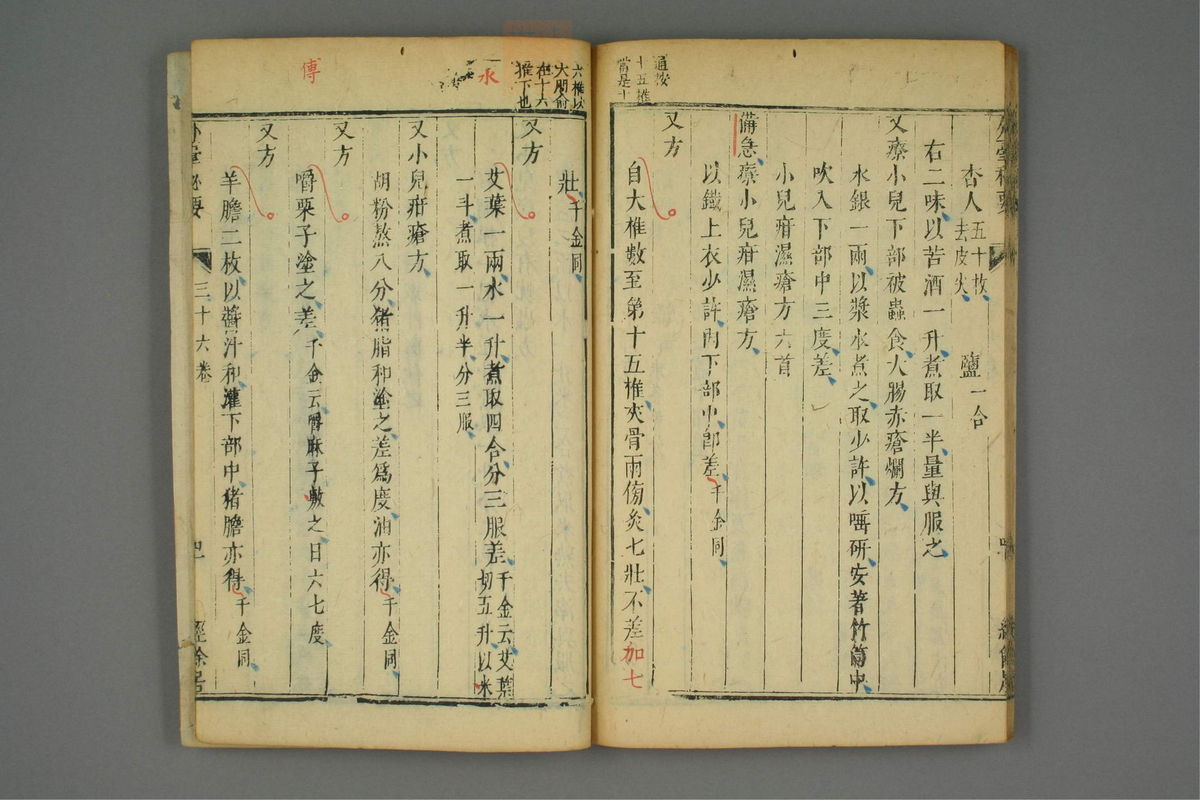 杏人五十枚去皮尖 鹽一合
右二味以苦酒一升煮取一半量與服之
又療小兒下部被蟲食大腸赤瘡爛方
水銀一兩以漿水煮之取少許以唾研安著竹筒中
吹入下部中三度差
小兒疳濕瘡方六首
備急療小兒疳濕瘡方
以鐵上衣少許內下部中即差千金同
又方
自大椎數至第十五椎夾骨兩傍灸七壯不差加七
通按
十五椎
當是十
六椎以
大腸俞
在十六
椎下也
壯千金同
又方
艾葉一兩水一升煮取四合分三服差千金云艾葉切五升以米
一斗煮取一升半分三服
水
又小兒疳瘡方
胡粉熬八分猪脂和塗之差爲度油亦得千金同
又方
嚼栗子塗之差千金云嚼麻子敷之日六七度
傅
又方
羊膽二枚以醬汁和灌下部中猪膽亦得千金同
外臺秘要 三十六卷 經餘居